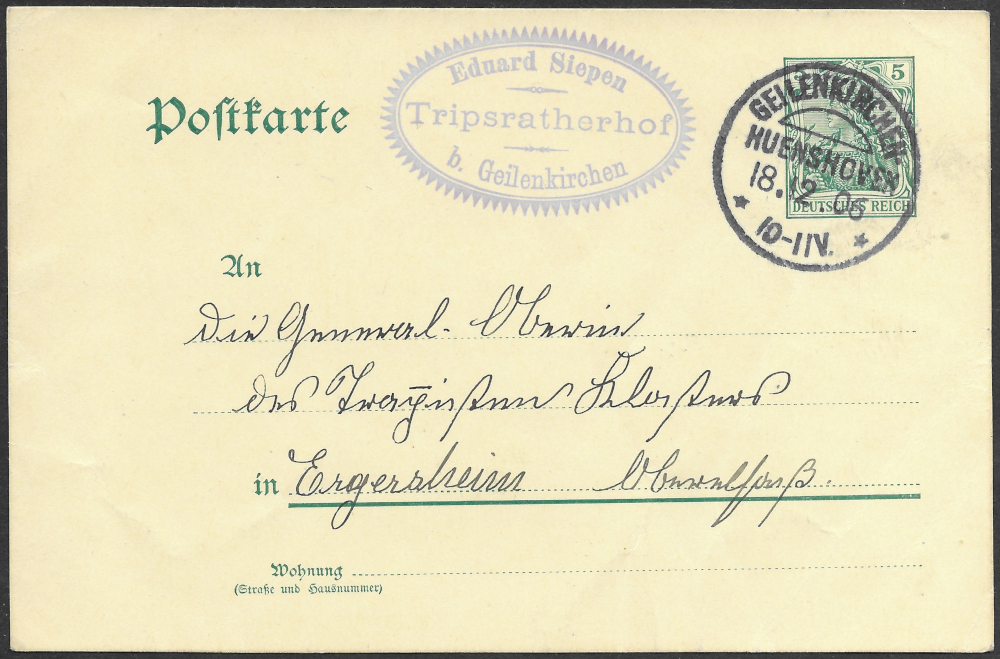 Postkarte
Eduard Siepen
Tripsratherhof
b. Geilenkirchen
5
DEUTSCHES REICH
GEILENKIRCHEN-
HUENSHOVEN
18.12.06
10-11V.
An
die General-Oberin
des Trappisten Klosters
in Ergersheim Oberelsaß.
Wohnung
(Straße und Hausnummer)